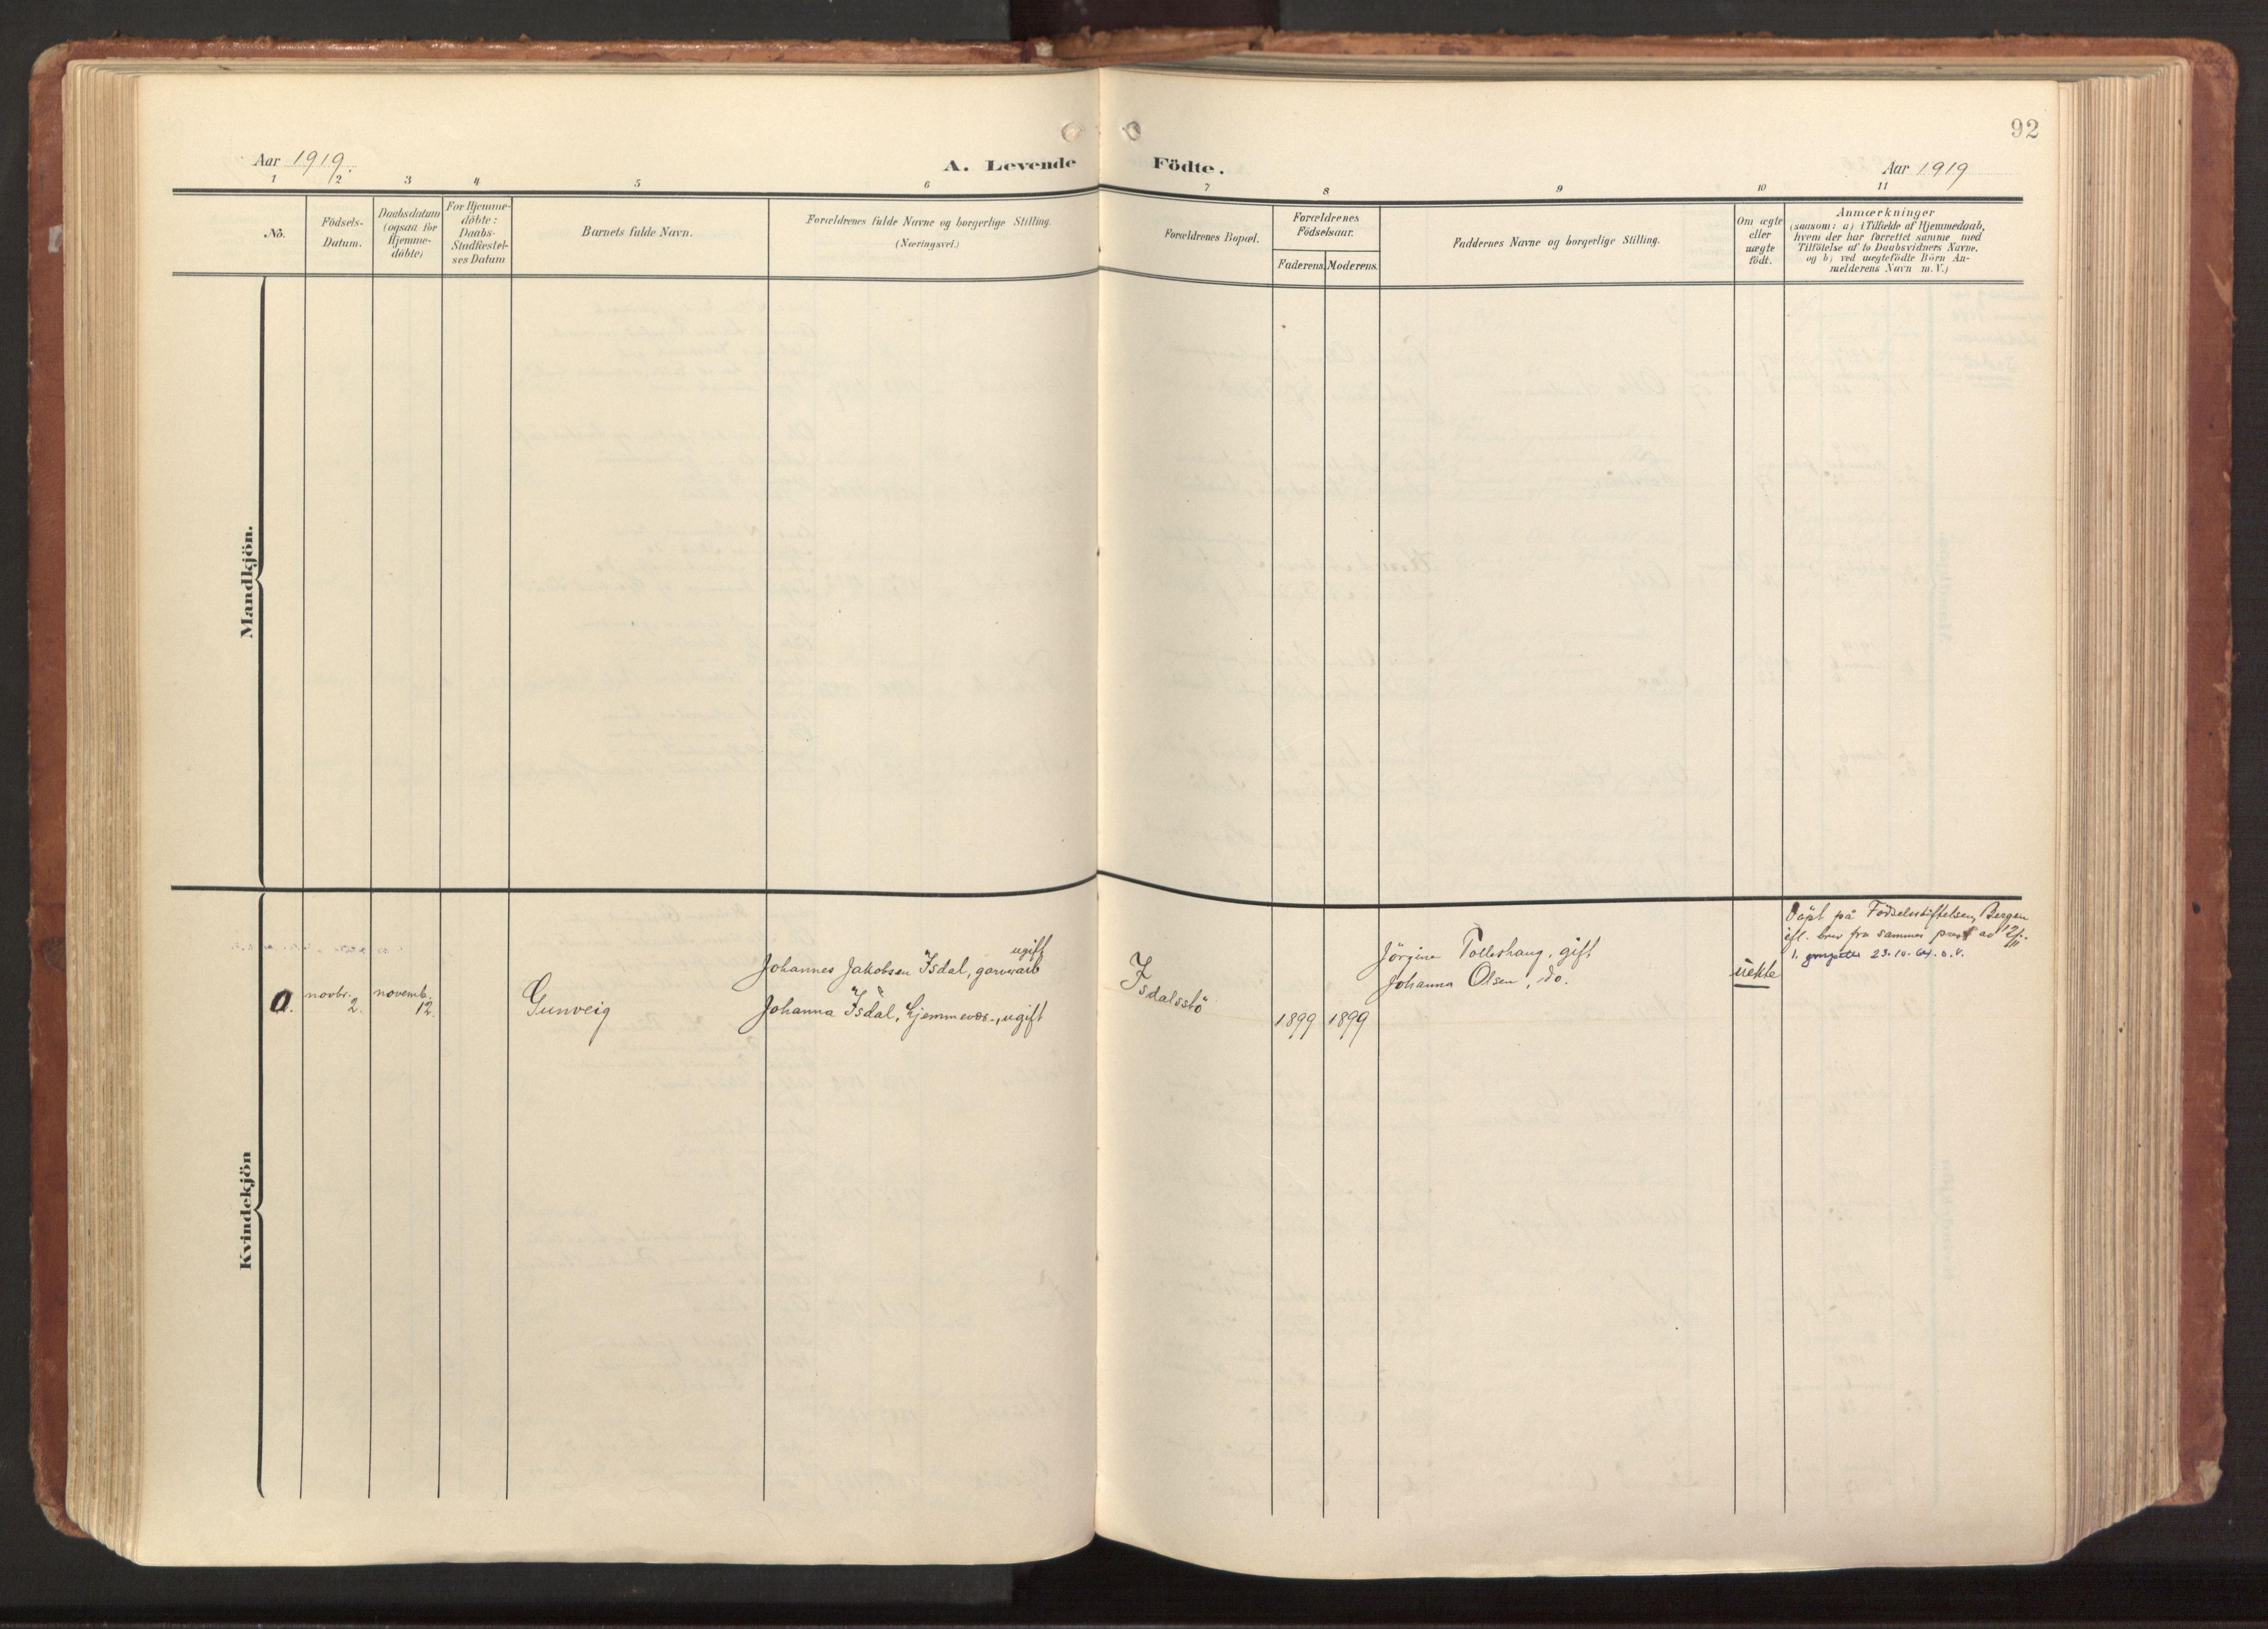 92
Aar 1919.
A. Levende Födte.
Aar 1919
1 2 3 4 5 6 7 8 9 10 11
No.
Födsels-
Datum.
Daabsdatum
(ogsaa for
Hjemme-
döbte)
For Hjemme-
döbte:
Daabs-
Stadfæstel-
ses Datum
Barnets fulde Navn.
Forældrenes fulde Navne og borgerlige Stilling.
(Næringsvei.)
Forældrenes Bopæl.
Forældrenes
Födselsaar.
Faderens.
Moderens.
Faddernes Navne og borgerlige Stilling.
Om ægte
eller
uægte
födt.
Anmærkninger
(saasom: a) i Tilfælde af Hjemmedaab,
hvem der har forrettet samme med
Tilföielse af to Daabsvidners Navne,
og b) ved uægtefödte Börn An-
melderens Navn m. V.)
Mandkjön.
Kvindekjön
0.
novbr.
2.
novemb.
12.
Gunveig
ugift
Johannes Jakobsen Isdal,
Johanna Isdal, hjemmevær., ugift
Isdalsstö
1899
1899
Jörgine Tolleshaug, gift
Johanna Olsen, do.
uekte
Döpt på Födselsstiftelsen, Bergen
ifl. brev fra sammes prest av 12/11.
23.10.64. o.V.